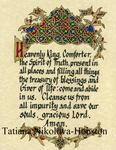 Heavenly King, Comforter,
the Spirit of Truth, present in
all places and filling all things,
the treasury of blessings and
Giver of life: come and abide
in us. Cleanse us from
all impurity and save our
souls, gracious Lord.
Amen.
Tatiana Nikolova-Houston